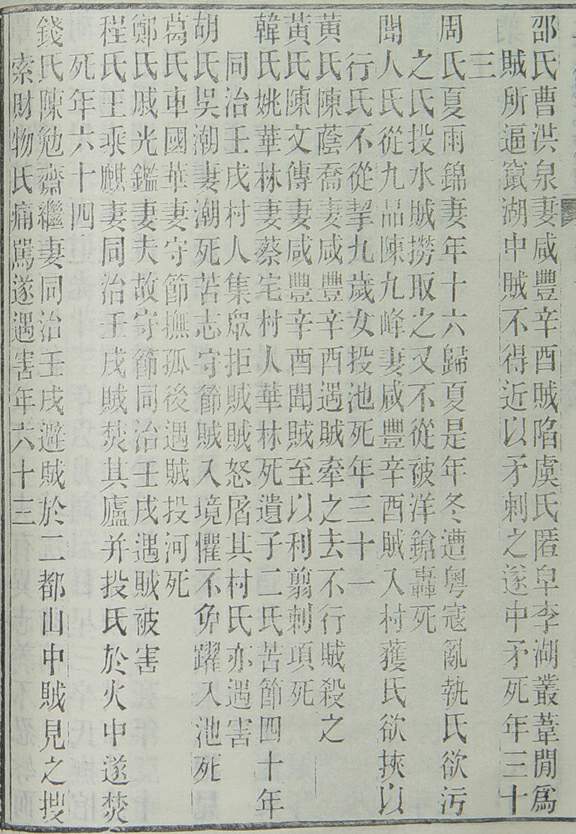 邵氏曹洪泉妻咸豐辛酉賊陷虞氏匿皁李湖叢葦閒爲
賊所逼竄湖中賊不得近以矛刺之遂中矛死年三十
三
周氏夏雨錦妻年十六歸夏是年冬遭粵寇亂執氏欲污
之氏投水賊撈取之又不從被洋鎗轟死
聞人氏從九品陳九峰妻咸豐辛酉賊入村獲氏欲挾以
行氏不從挈九歲女投池死年三十一
黃氏陳蔭喬妻咸豐辛酉遇賊牽之去不行賊殺之
黃氏陳文傳妻咸豐辛酉聞賊至以利翦刺項死
韓氏姚華林妻蔡宅村人華林死遺子二氏苦節四十年
同治壬戌村人集眾拒賊賊怒屠其村氏亦遇害
胡氏吳潮妻潮死苦志守節賊入境懼不免躍入池死
葛氏車國華妻守節撫孤後遇賊投河死
鄭氏戚光鑑妻夫故守節同治壬戌遇賊被害
程氏王乘麒妻同治壬戌賊焚其廬并投氏於火中遂焚
死年六十四
錢氏陳勉齋繼妻同治壬戌避賊於二都山中賊見之搜
索財物氏痛罵遂遇害年六十三